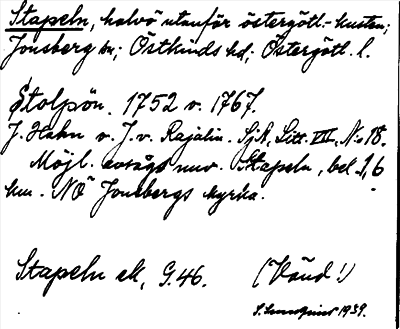 Stapeln, halvö utanför östergötl.-kusten;
Jonsberg sn; Östkinds hd; Östergötl. l.
Stolpön. 1752 o. 1767.
J. Hahn o. J. v. Rajalin. SjK, Litt. VII, N:o 18.
Möjl. avsågs nuv. Stapeln, bel. 1,6
km. NÖ Jonsbergs kyrka.
Stapeln ek, G.46. (Vänd!)
S. Lundqvist 1939.